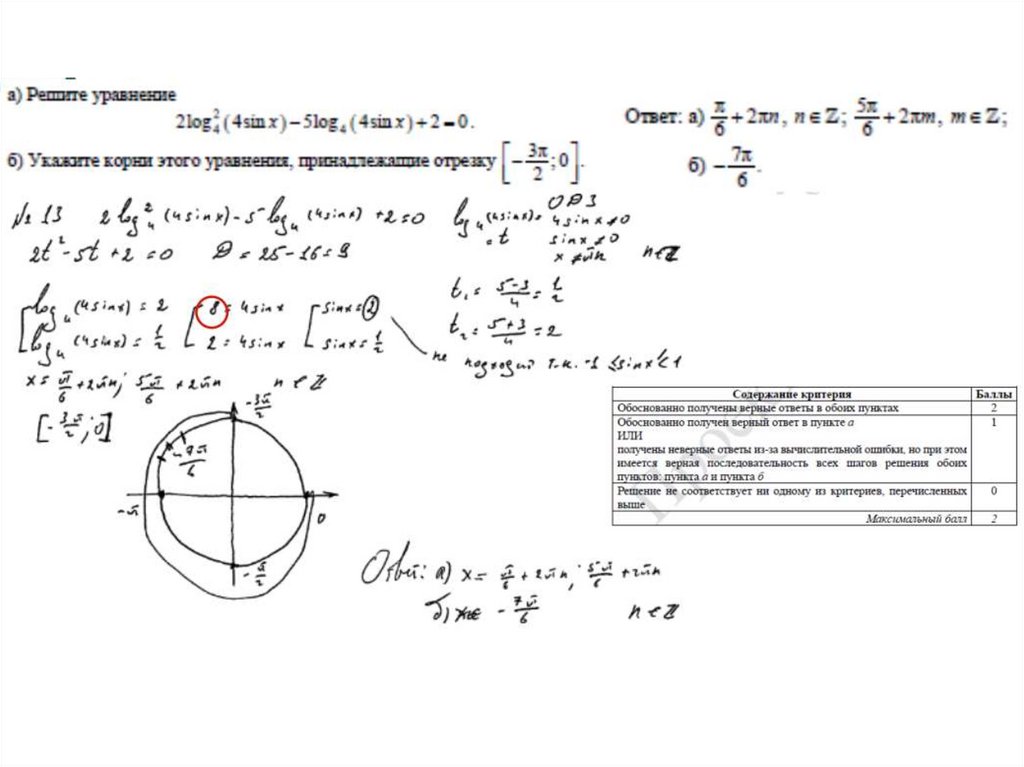 а) Решите уравнение
2log₄²(4sin x) − 5log₄(4sin x) + 2 = 0.
б) Укажите корни этого уравнения, принадлежащие отрезку [−3π/2; 0].
Ответ: а) π/6 + 2πn, n ∈ ℤ; 5π/6 + 2πm, m ∈ ℤ;
б) −7π/6.
№ 13 2log₄²(4sinx) − 5log₄(4sinx) + 2 = 0
2t² − 5t + 2 = 0 D = 25 − 16 = 9
log₄(4sinx) = t
ОДЗ
4sinx ≠ 0
sinx ≠ 0
x ≠ πn n ∈ ℤ
t₁ = (5−3)/4 = 1/2
t₂ = (5+3)/4 = 2
log₄(4sinx) = 2 8 = 4sinx sinx = 2
log₄(4sinx) = 1/2 2 = 4sinx sinx = 1/2
не подходит т.к. −1 ≤ sinx ≤ 1
x = π/6 + 2πn; 5π/6 + 2πn n ∈ ℤ
[−3π/2; 0]
−3π/2
−7π/6
−π
0
−π/2
Содержание критерия Баллы
Обоснованно получены верные ответы в обоих пунктах 2
Обоснованно получен верный ответ в пункте а 1
ИЛИ
получены неверные ответы из-за вычислительной ошибки, но при этом
имеется верная последовательность всех шагов решения обоих
пунктов: пункта а и пункта б
Решение не соответствует ни одному из критериев, перечисленных 0
выше
Максимальный балл 2
Ответ: а) x = π/6 + 2πn; 5π/6 + 2πn
б) −7π/6 n ∈ ℤ